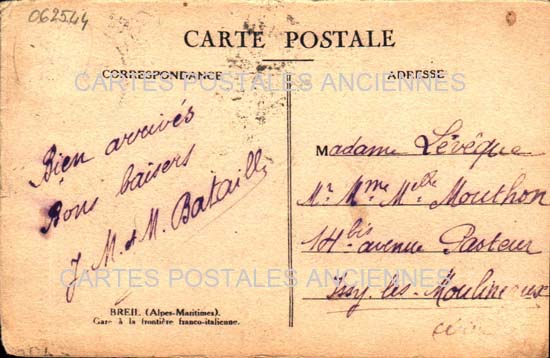 062544
CARTE POSTALE
CORRESPONDANCE
ADRESSE
CARTES POSTALES ANCIENNES
Bien arrivés
Bons baisers
J. M. & M. Bataille
Madame Lévêque
Mr Mme Melle Mouthon
14 bis avenue Pasteur
Issy-les-Moulineaux
CARTES POSTALES ANCIENNES
BREIL (Alpes-Maritimes).
Gare à la frontière franco-italienne.